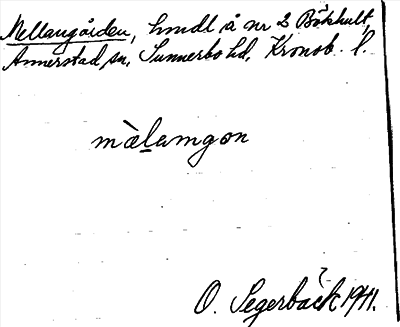 Mellangården, hmdl å nr 2 Bökhult,
Annerstad sn, Sunnerbo hd, Kronob. l.
mὰlamgon
O. Segerbäck 1941.